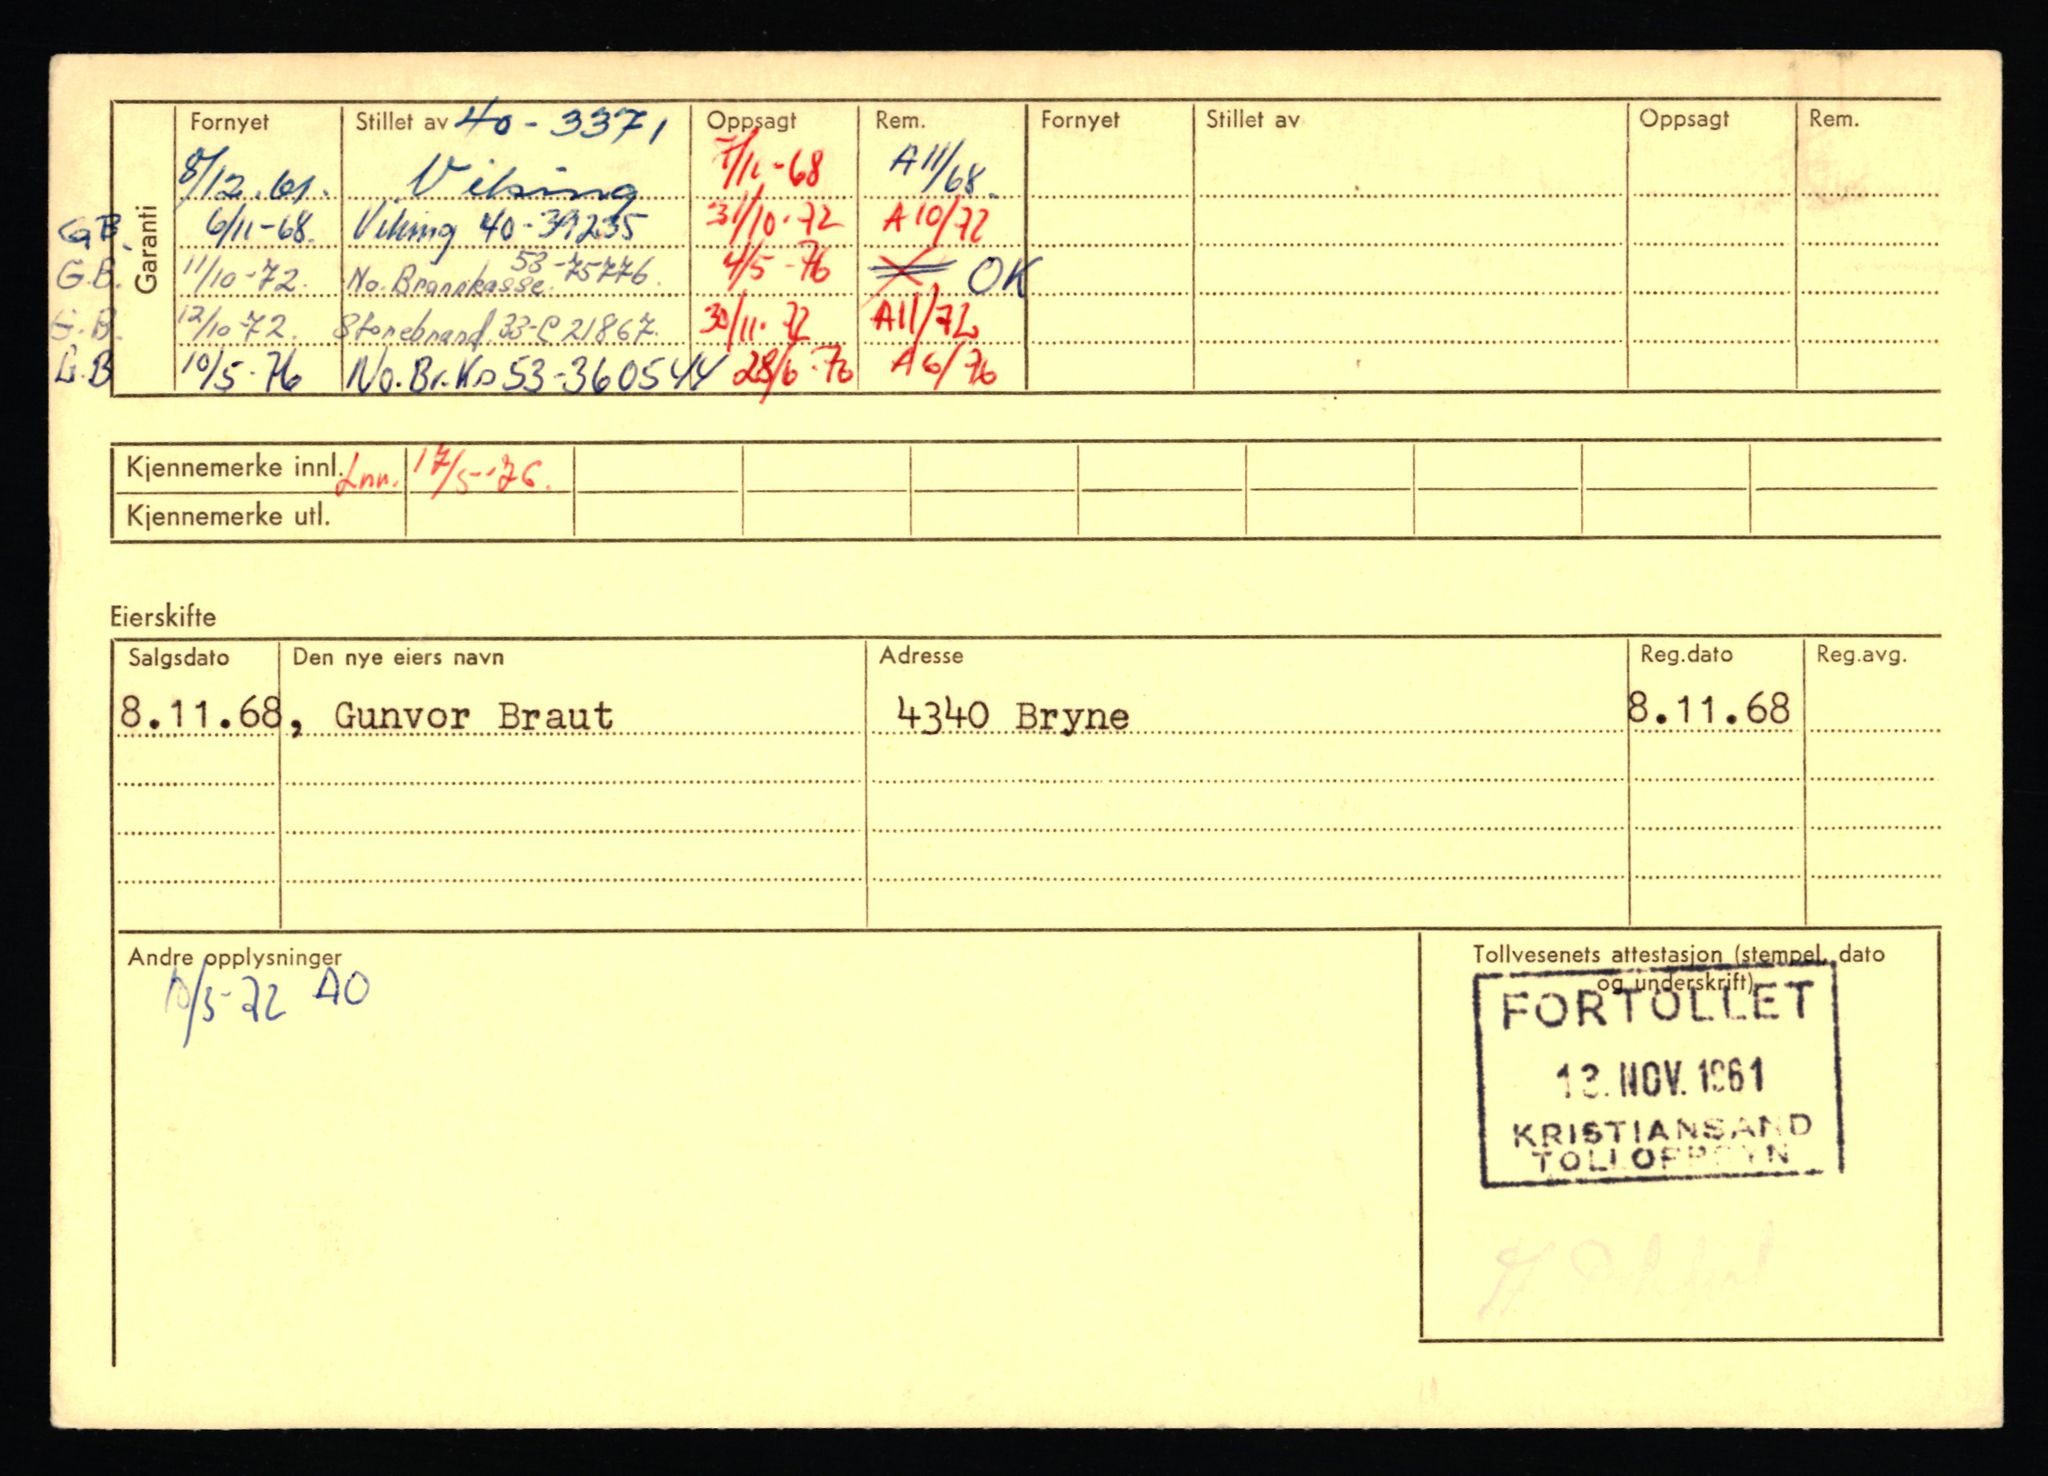 Garanti
Fornyet Stillet av 40-3371 Oppsagt Rem. Fornyet Stillet av Oppsagt Rem.
8/12.61. Viking 7/11-68 A11/68.
G.B. 6/11-68. Viking 40-39235 31/10.72 A10/72
G.B. 11/10-72. No. Brannkasse. 53-75776. 4/5-76 OK
G.B. 12/10-72. Storebrand. 33-C21867. 30/11.72 A11/72
G.B 10/5-76 No.Br.Ks 53-360544 28/6-76 A6/76
Kjennemerke innl. Inn. 17/5-76.
Kjennemerke utl.
Eierskifte
Salgsdato Den nye eiers navn Adresse Reg.dato Reg.avg.
8.11.68, Gunvor Braut 4340 Bryne 8.11.68
Andre opplysninger
10/5-72 AO
Tollvesenets attestasjon (stempel, dato
og underskrift)
FORTOLLET
13. NOV. 1961
KRISTIANSAND
TOLLOPPSYN